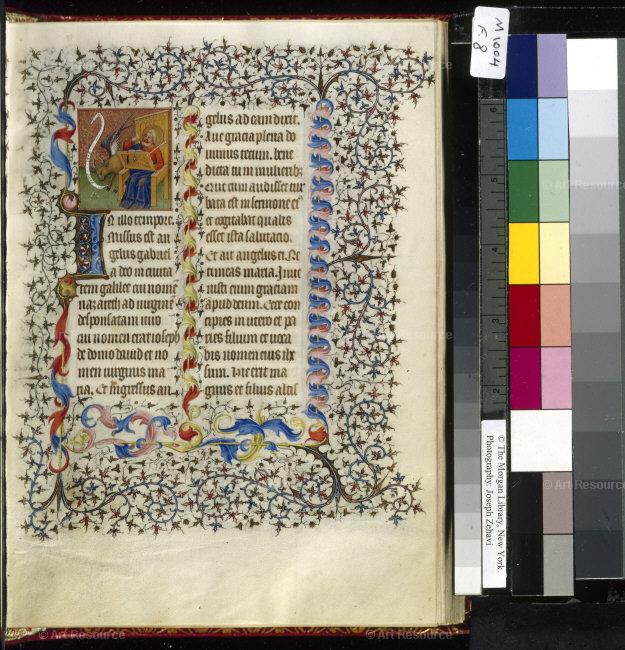 In illo tempore.
Missus est an
gelus gabriel
a deo in ciuita
tem galilee cui nomē
nazareth ad uirginē
desponsatam uiro
cui nomen erat ioseph
de domo dauid et no
men uirginis ma
ria. Et ingressus an
gelus ad eam dixit.
Aue gracia plena do
minus tecum. bene
dicta tu in mulieribꝫ
Que cum audisset tur
bata est in sermone eiꝰ
et cogitabat qualis
esset ista salutacio.
Et ait angelus ei. Ne
timeas maria. Inue
nisti enim graciam
apud deum. Ecce con
cipies in utero et pa
ries filium et uoca
bis nomen eius ihe
sum. hic erit ma
gnus et filius altis
M 1004
F. 8
6
5
4
3
2
© The Morgan Library, New York.
Photography: Joseph Zehavi
© Art Resource
© Art Resource
© Art Resource
© Art Resource